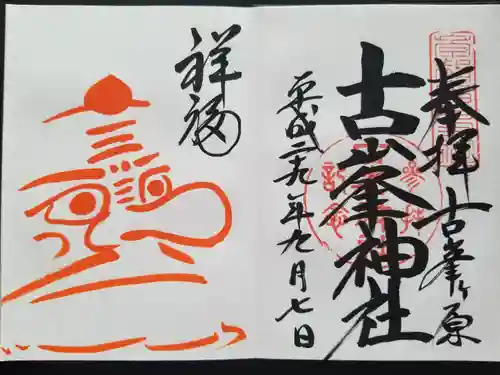 奉拝 古峯ヶ原
古峯神社
平成二十九年九月七日
祥福